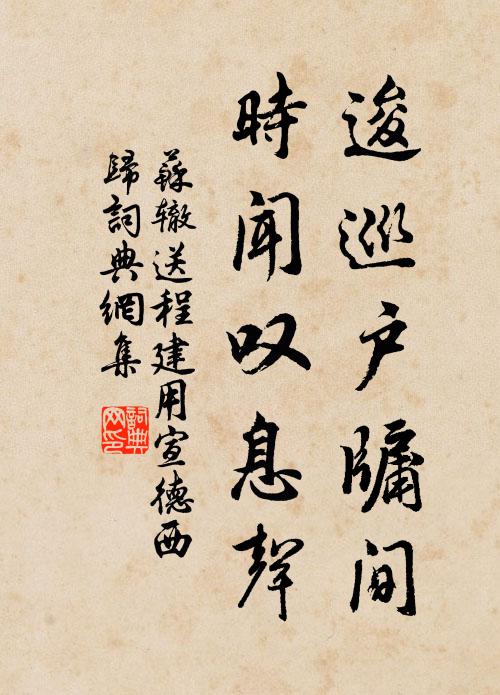 逡巡户牖间
時聞叹息聲
蘇辙送程建用宣德西
歸詞典網集
詞典网印